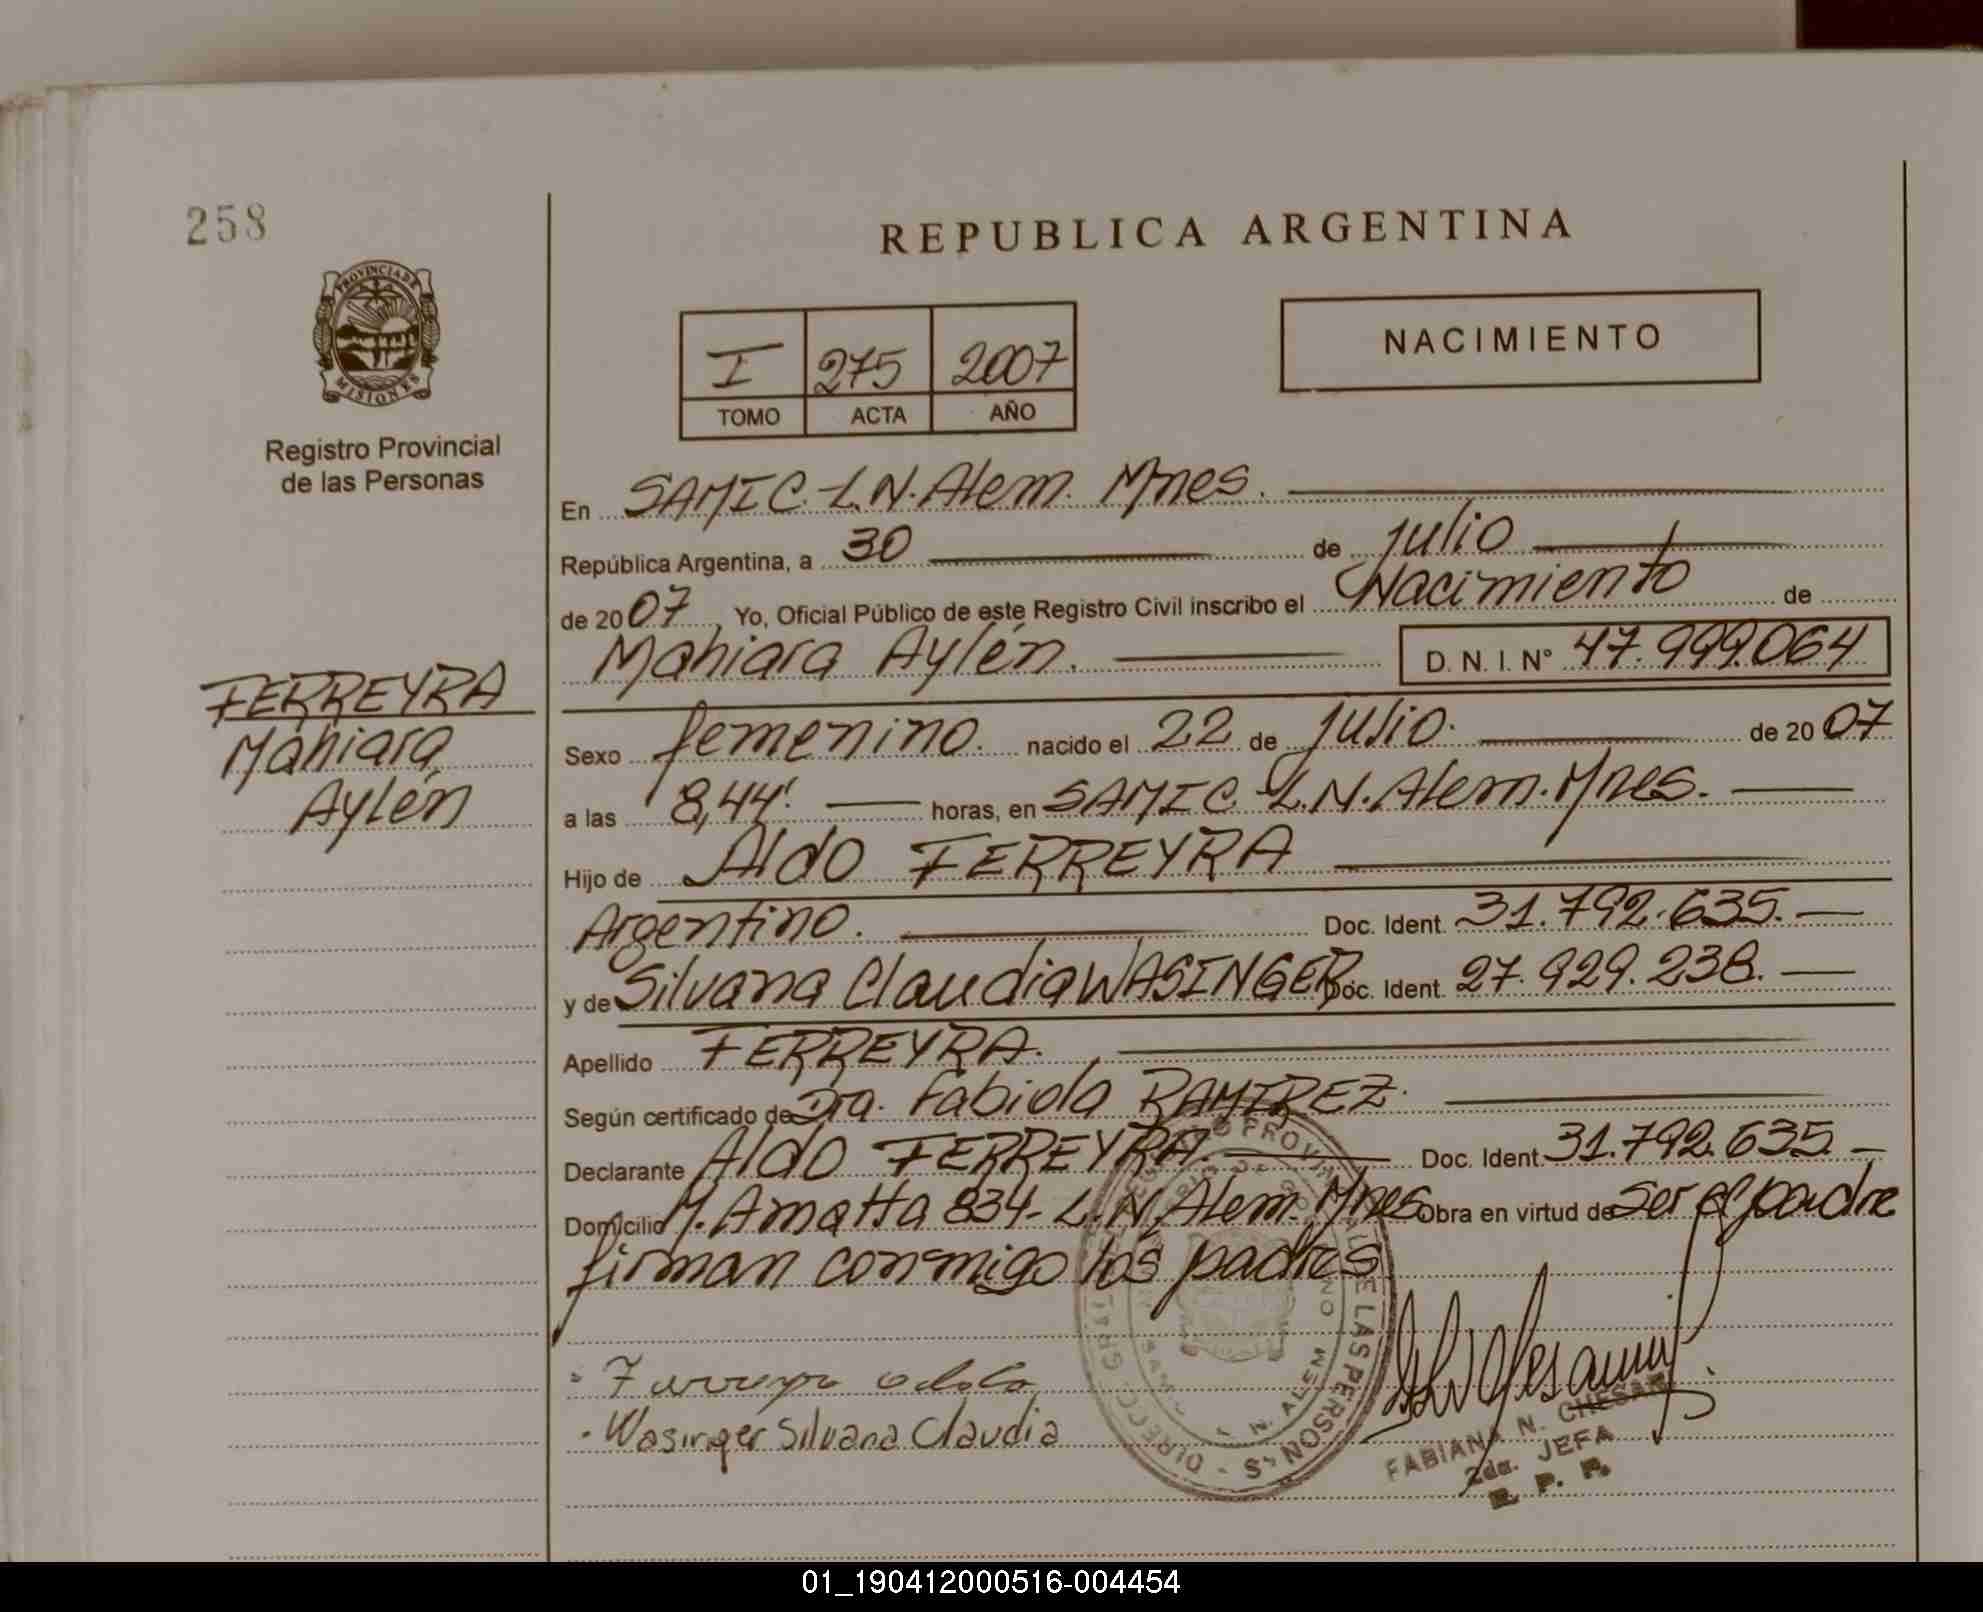 258
REPUBLICA ARGENTINA
PROVINCIA DE
MISIONES
Registro Provincial
de las Personas
I 275 2007
TOMO ACTA AÑO
NACIMIENTO
En SAMIC-L.N.Alem. Mnes.
República Argentina, a 30 de julio
de 2007, Yo, Oficial Público de este Registro Civil inscribo el Nacimiento de
Mahiara Aylén. D. N. I. N° 47.999.064
FERREYRA
Mahiara
Aylén
Sexo femenino. nacido el 22 de julio. de 2007
a las 8,44'. horas, en SAMIC-L.N.Alem.Mnes.
Hijo de Aldo FERREYRA
Argentino. Doc. Ident. 31.792.635.
y de Silvana Claudia WASINGER Doc. Ident. 27.929.238.
Apellido FERREYRA.
Según certificado de Dra. Fabiola RAMIREZ.
Declarante Aldo FERREYRA. Doc. Ident. 31.792.635.
Domicilio M. Amatta 834- L.N.Alem. Mnes Obra en virtud de ser el padre
firman conmigo los padres
Wasinger Silvana Claudia
FABIANA N. CHESANI
2da. JEFA
R. P. P.
01_190412000516-004454